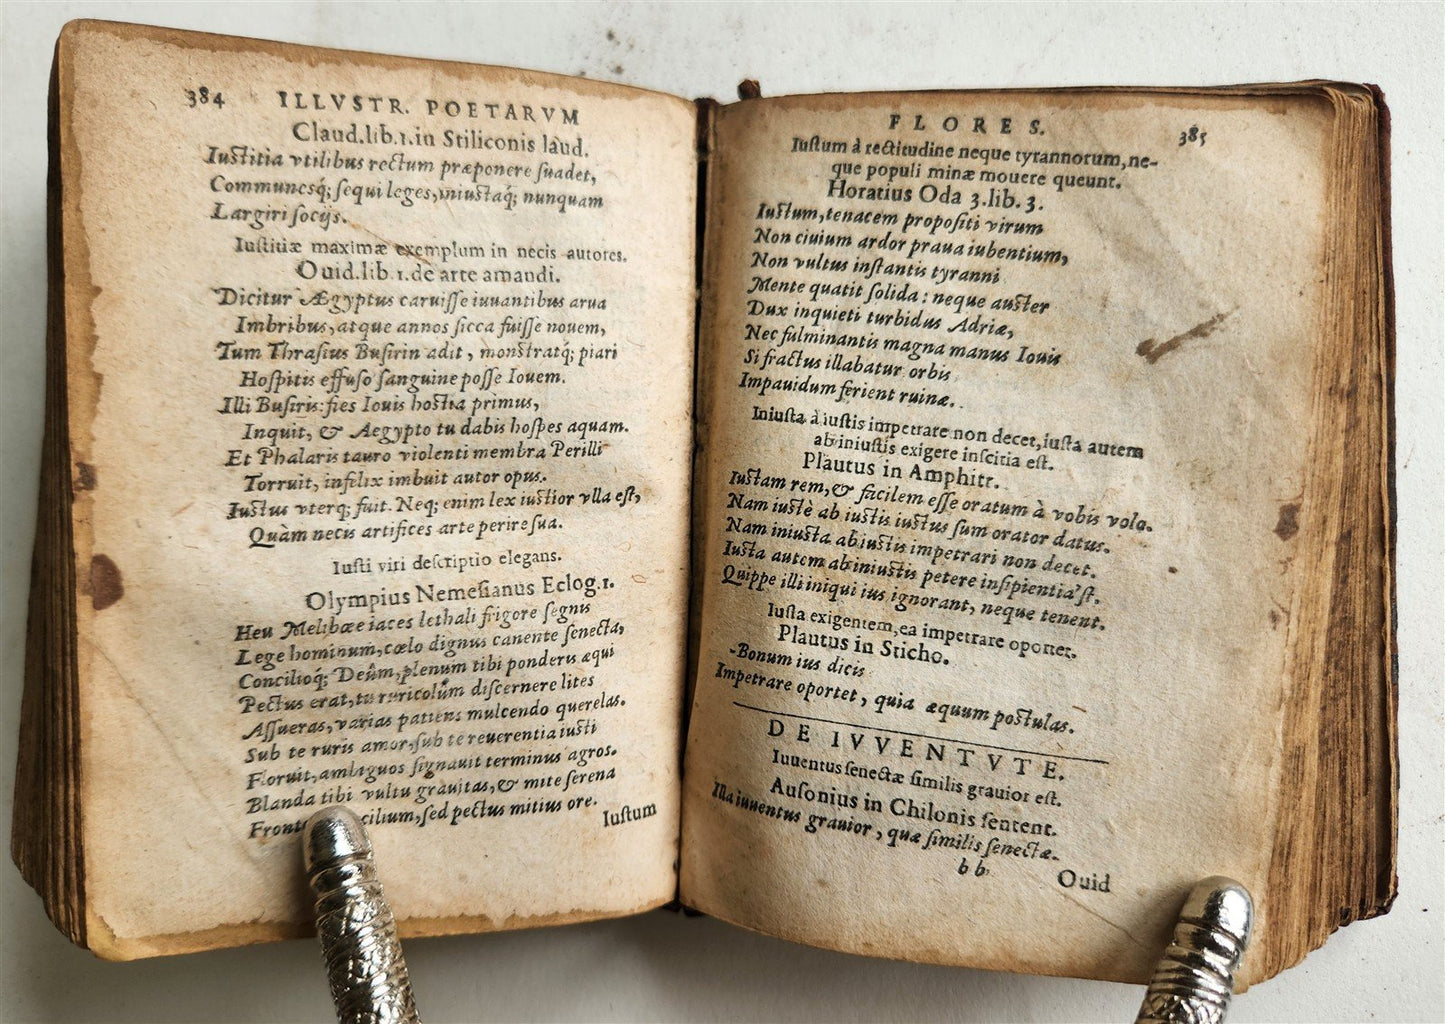 384 ILLVSTR. POETARVM
Claud.lib.1.in Stiliconis laud.
Iustitia vtilibus rectum præponere suadet,
Communesq́; sequi leges,iniustaq́; nunquam
Largiri socijs.
Iustitiæ maximæ exemplum in necis autores.
Ouid.lib.1.de arte amandi.
Dicitur Ægyptus caruisse iuuantibus arua
Imbribus,atque annos sicca fuisse nouem,
Tum Thrasius Busirin adit, monstratq́; piari
Hospitis effuso sanguine posse Iouem.
Illi Busiris:fies Iouis hostia primus,
Inquit, & Aegypto tu dabis hospes aquam.
Et Phalaris tauro violenti membra Perilli
Torruit, infelix imbuit autor opus.
Iustus vterq; fuit. Neq; enim lex iustior vlla est,
Quàm necis artifices arte perire sua.
Iusti viri descriptio elegans.
Olympius Nemesianus Eclog.1.
Heu Melibœe iaces lethali frigore segnis
Lege hominum,cœlo dignus canente senecta,
Concilioq́; Deûm,plenum tibi ponderis æqui
Pectus erat,tu ruricolûm discernere lites
Assueras,varias patiens mulcendo querelas.
Sub te ruris amor,sub te reuerentia iusti
Floruit,ambiguos signauit terminus agros.
Blanda tibi vultu grauitas,& mite serena
Fronte cilium,sed pectus mitius ore.
Iustum
FLORES. 385
Iustum à rectitudine neque tyrannorum,ne-
que populi minæ mouere queunt.
Horatius Oda 3.lib.3.
Iustum,tenacem propositi virum
Non ciuium ardor praua iubentium,
Non vultus instantis tyranni
Mente quatit solida: neque auster
Dux inquieti turbidus Adriæ,
Nec fulminantis magna manus Iouis
Si fractus illabatur orbis
Impauidum ferient ruinæ.
Iniusta à iustis impetrare non decet,iusta autem
ab iniustis exigere inscitia est.
Plautus in Amphitr.
Iustam rem,& facilem esse oratum à vobis volo.
Nam iustè ab iustis iustus sum orator datus.
Nam iniusta ab iustis impetrari non decet.
Iusta autem ab iniustis petere insipientia'st.
Quippe illi iniqui ius ignorant, neque tenent.
Iusta exigentem,ea impetrare oportet.
Plautus in Sticho.
-Bonum ius dicis
Impetrare oportet, quia æquum postulas.
DE IVVENTVTE.
Iuuentus senectæ similis grauior est.
Ausonius in Chilonis sentent.
Illa iuuentus grauior, quæ similis senectæ.
bb Ouid